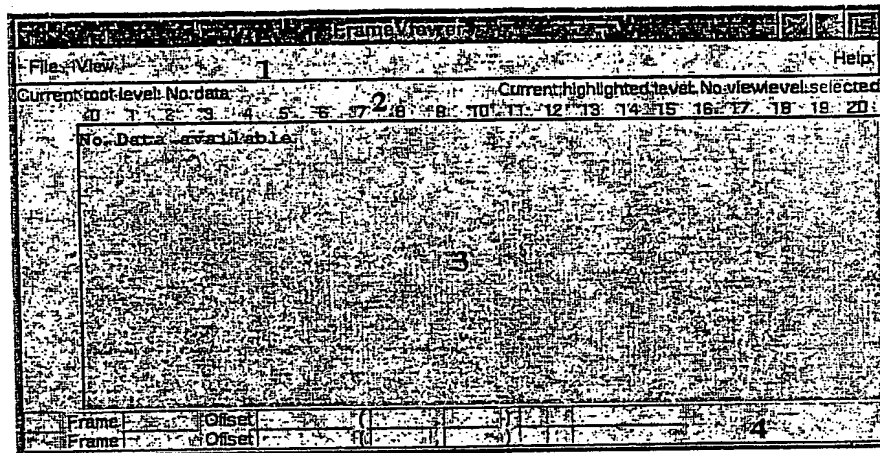 FrameViewer
File View Help
1
Current root level: No data Current highlighted level: No viewlevel selected
2
0 1 2 3 4 5 6 7 8 9 10 11 12 13 14 15 16 17 18 19 20
No Data available
3
Frame Offset ( )
Frame Offset ( )
4